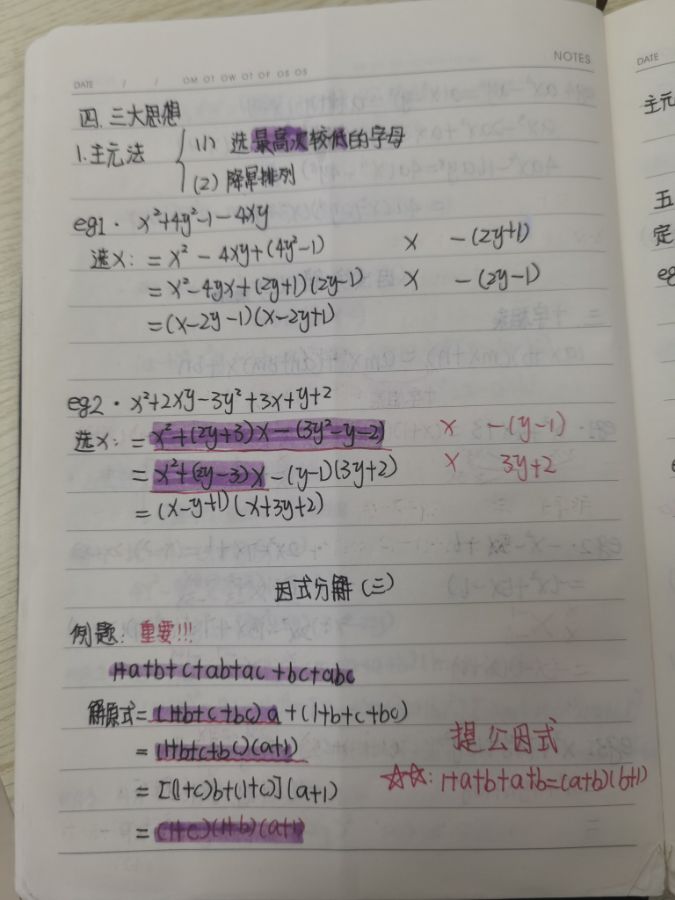 NOTES
DATE / / OM OT OW OT OF OS OS
四.三大思想
1.主元法 { (1) 选最高次较低的字母
(2) 降幂排列
eg1· x²+4y²-1-4xy
选x: = x² - 4xy+(4y²-1) x -(2y+1)
= x²-4yx+(2y+1)(2y-1) x -(2y-1)
=(x-2y-1)(x-2y+1)
eg2· x²+2xy-3y²+3x+y+2
选x: = x²+(2y+3)x-(3y²-y-2) x -(y-1)
= x²+(2y-3)x-(y-1)(3y+2) x 3y+2
=(x-y+1)(x+3y+2)
因式分解(三)
例题: 重要!!!
1+a+b+c+ab+ac+bc+abc
解原式=(1+b+c+bc)a+(1+b+c+bc)
=(1+b+c+bc)(a+1)
=[(1+c)b+(1+c)](a+1)
=(1+c)(1+b)(a+1)
提公因式
☆☆: 1+a+b+a+b=(a+b)(b+1)
DATE
主元
五
定
eg